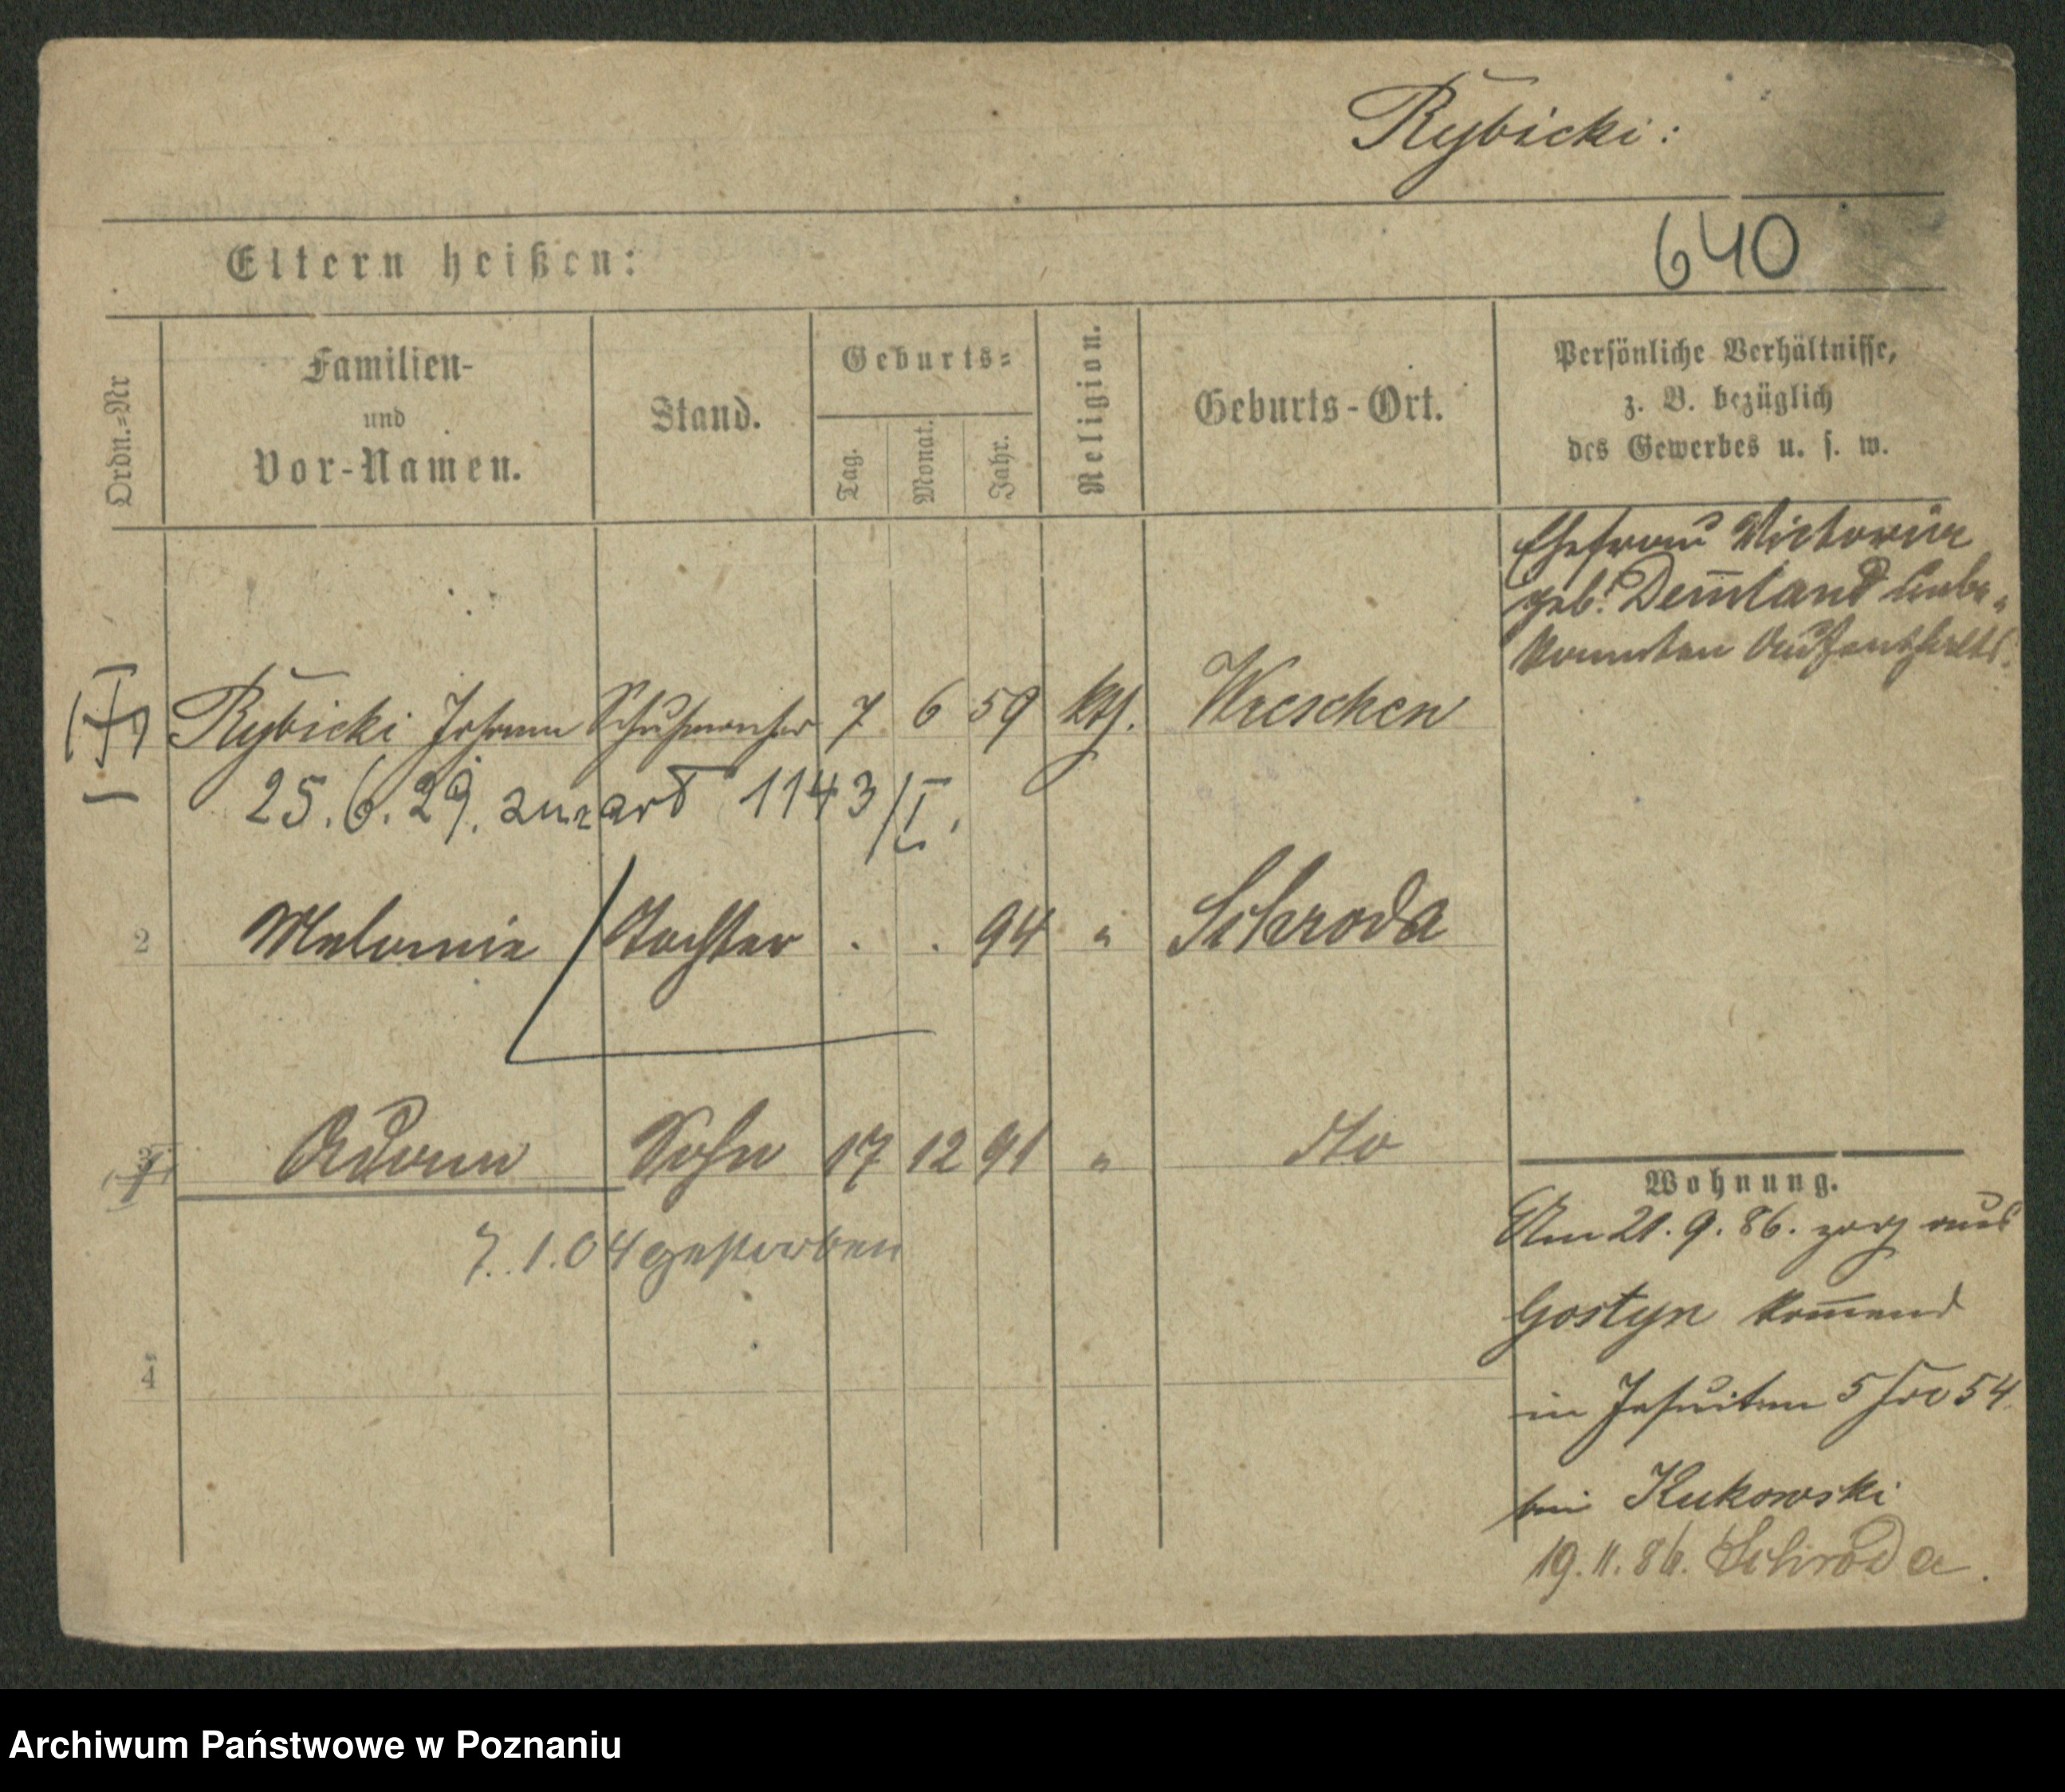 Rybicki:
Eltern heißen:
640
Ordn.=Nr
Familien-
und
Vor-Namen.
Stand.
Geburts=
Tag.
Monat.
Jahr.
Religion.
Geburts-Ort.
Persönliche Verhältnisse,
z. B. bezüglich
des Gewerbes u. s. w.
Ehefrau Victoria
geb. Dem̅land unbe-
kannten Aufenthalts.
Rybicki Johann Schuhmacher 7 6 59 kth. Wreschen
25.6.29. zmarł 1143/I.
2 Melanie Tochter . . 94 " Schroda
3 Adam Sohn 17 12 91 " dto
7.1.04 gestorben
4
Wohnung.
Am 21.9.86. zorg aus
Gostyn kom̅end
in Jesuiten 5 fro 54
bei Kukowski
19.11.86. Schroda.
Archiwum Państwowe w Poznaniu